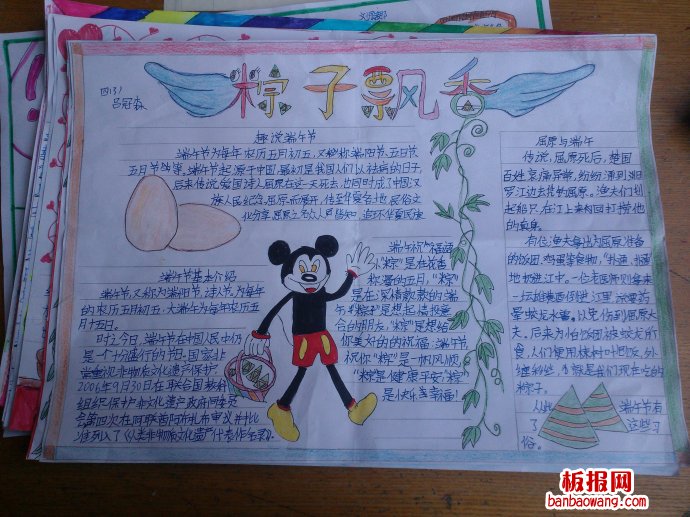 粽子飘香
四(3)
吕冠森
趣说端午节
端午节为每年农历五月初五,又称端阳节、五日节
五月节等,端午节起源于中国,最初是我国人们以祛病的日子
后来传说爱国诗人屈原在这一天死去,也同时成了中国汉
族人民纪念屈原
端午节基本介绍
端午节,又称为端阳节,诗人节。为每年
的农历五月初五,大端午为每年农历五
月十五日。
时过今日,端午节在中国人民中仍
是一个十分盛行的节日,国家非
常重视非物质文化遗产保护
2006年9月30日在联合国教科
组织保护非文化遗产政府间委员
会第四次在阿联酋阿布扎布审议并批
准列入了《人类非物质文化遗产代表作名录》。
端午祝福语
"粽"是在花香
弥漫的五月,"粽"
是在深情款款的端
午,"粽"是想起情投意
合的朋友,"粽"是想给
你美好的的祝福:端午节
祝你"粽"是一帆风顺,
"粽"是健康平安,"粽"
是快乐幸福!
屈原与端午
传说,屈原死后,楚国
百姓哀痛异常,纷纷涌到汨
罗江边去凭吊屈原。渔夫们划
起船只,在江上来回打捞他
的真身。
有位渔夫拿出为屈原准备
的饭团、鸡蛋等食物,"扑通、扑通"
地扔进江中。一位老医师则拿来
一坛雄黄酒倒进江里,
晕蛟龙水兽,以免伤到屈原大
夫。后来为怕饭团被蛟龙所
食,人们使用楝树叶包饭,外
缠彩丝,也就是我们现在吃的
粽子。
从此端午节有
了这些习
俗。
板报网
banbaowang.com